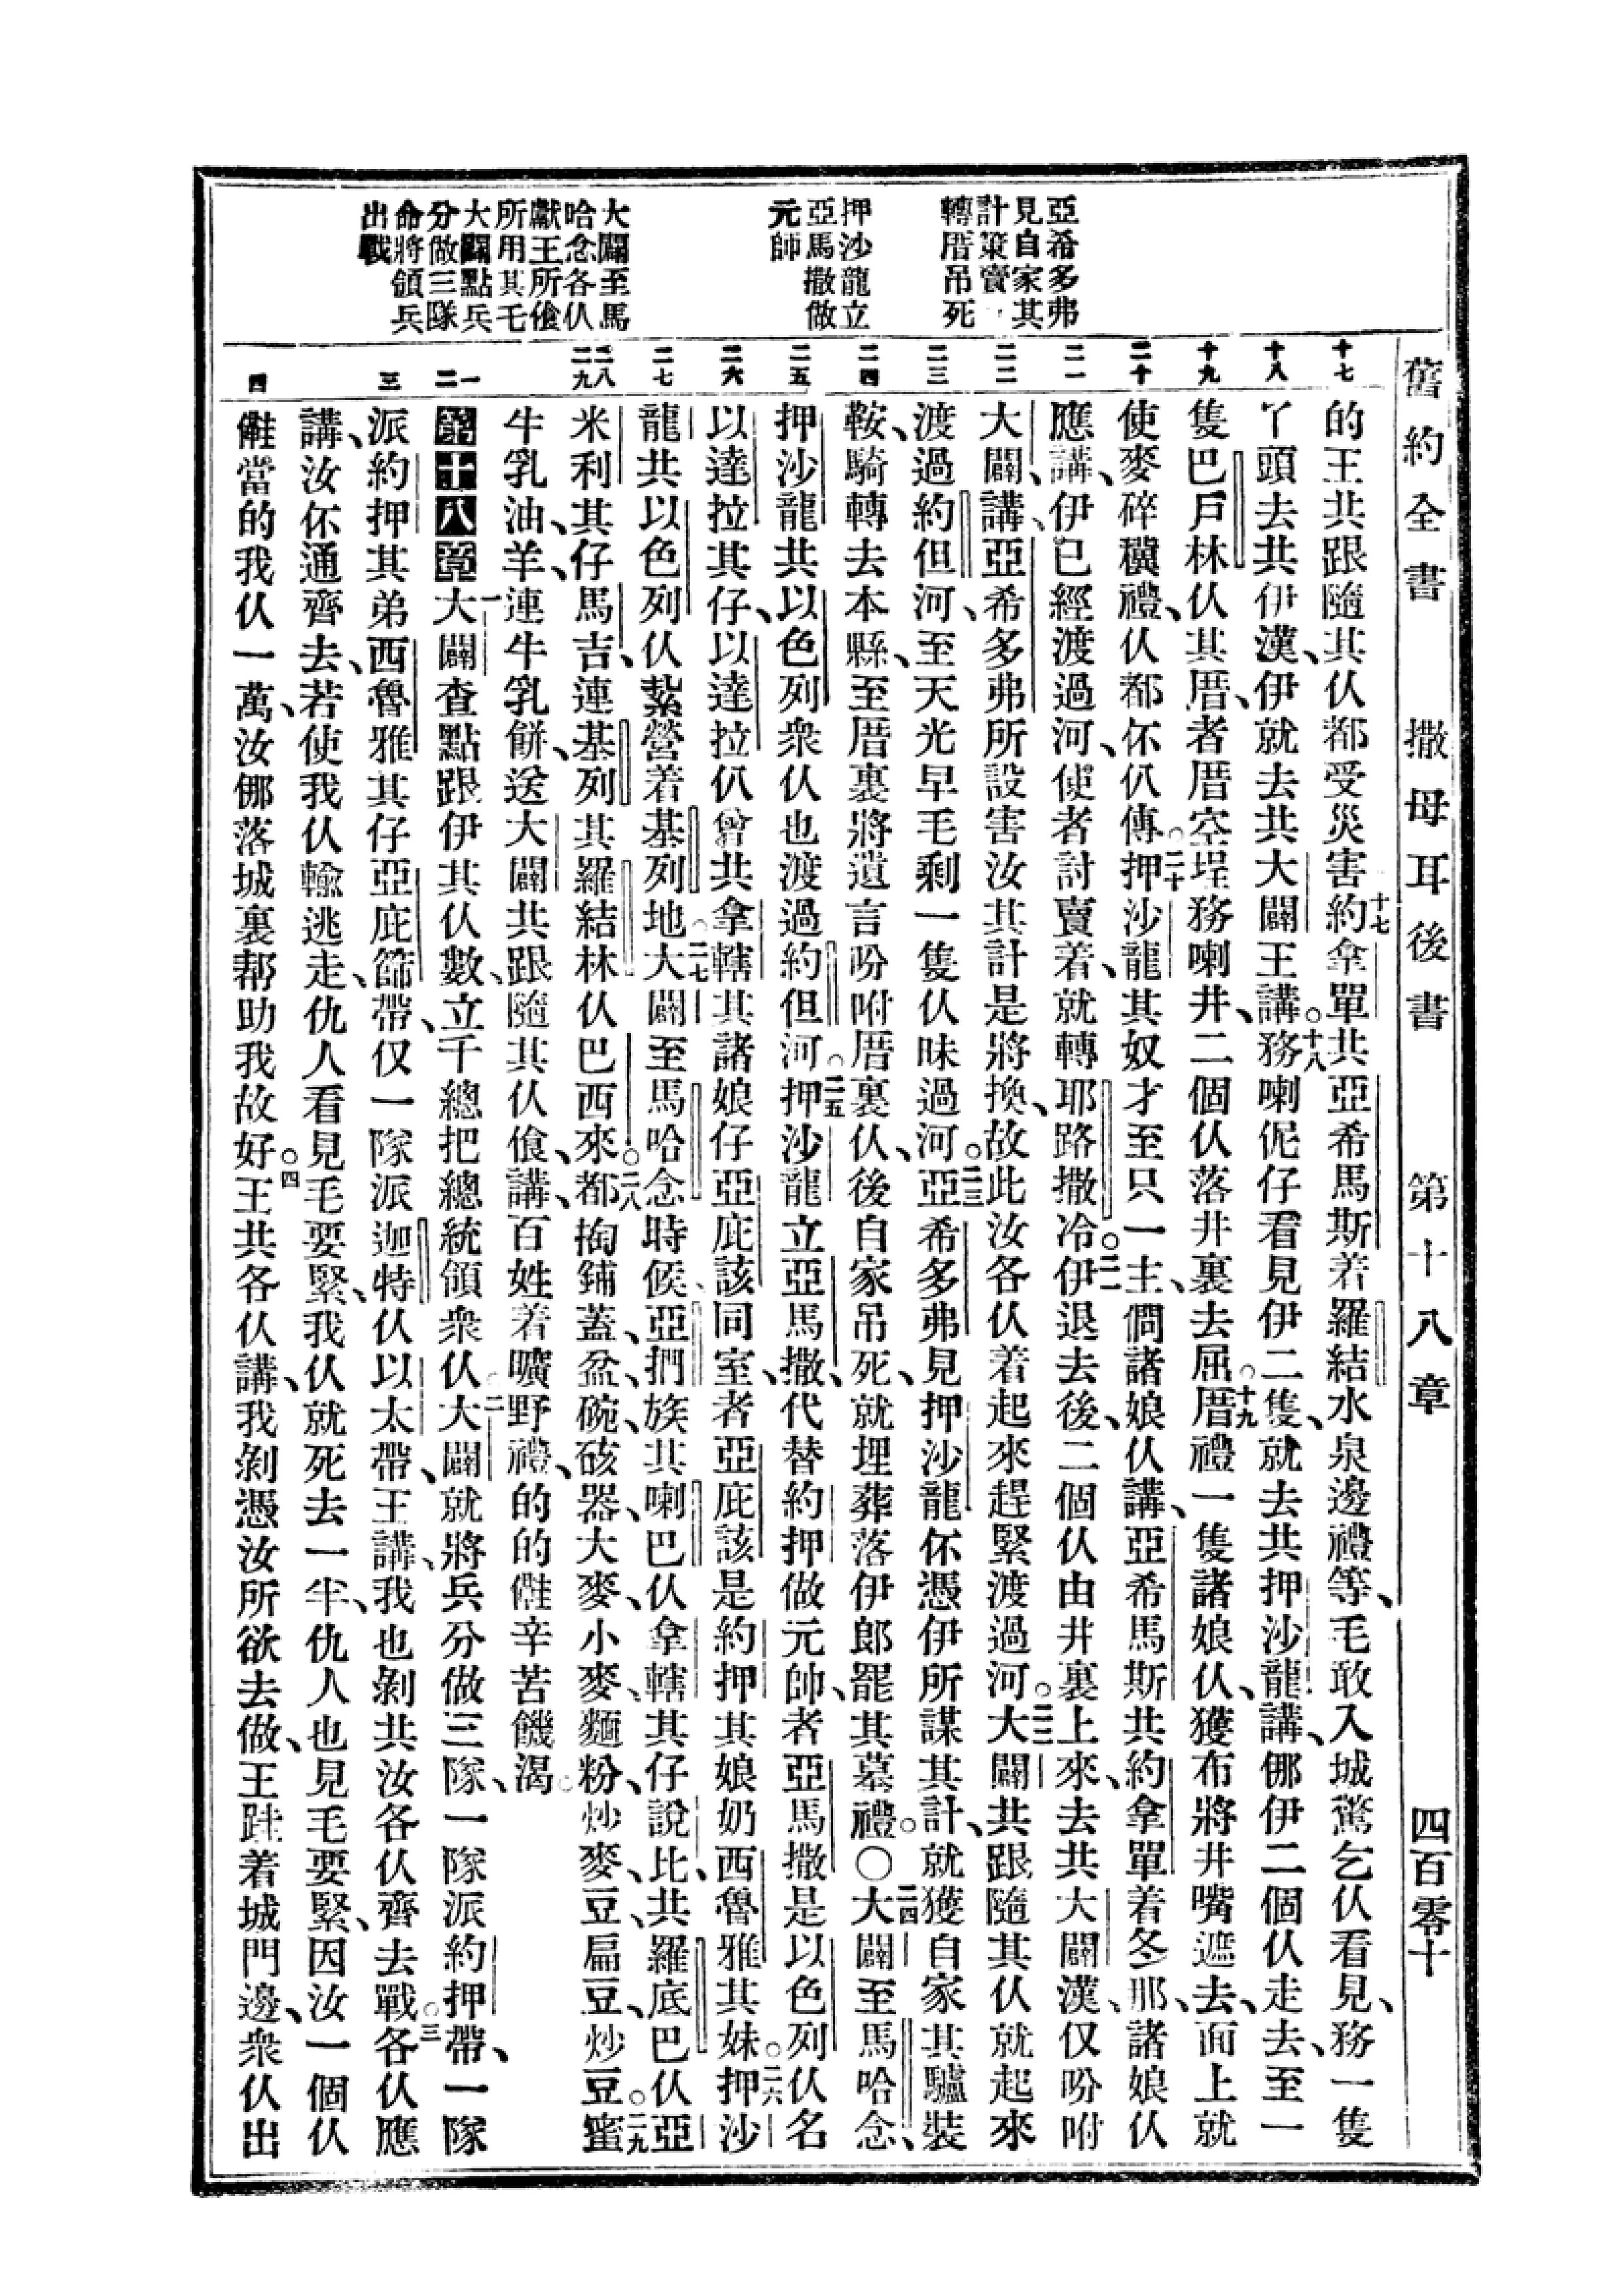 舊約全書 撒母耳後書 第十八章 四百零十
亞希多弗
見自家其
計策賣
轉厝吊死
押沙龍立
亞馬撒做
元帥
大闢至馬
哈念各仈
獻王所傖
所用其乇
大闢點兵
分做三隊
命將領兵
出戰
十七
十八
十九
二十
二一
二二
二三
二四
二五
二六
二七
二八
二九
一
二
三
四
的王共跟隨其仈都受災害十七約拿單共亞希馬斯着羅結水泉邊禮等、毛敢入城驚乞仈看見、務一隻
丫頭去共伊漢、伊就去共大闢王講○十八務喇伲仔看見伊二隻、就去共押沙龍講、倻伊二個仈走去、至一
隻巴戶林仈其厝、者厝空埕務喇井、二個仈落井裏去屈厝禮○十九一隻諸娘仈、獲布將井嘴遮去、面上就
使麥碎穬禮、仈都伓仈傳○二十押沙龍其奴才至只一主、僩諸娘仈講、亞希馬斯共約拿單着冬那、諸娘仈
應講、伊已經渡過河、使者討賣着、就轉耶路撒冷○二一伊退去後、二個仈由井裏上來、去共大闢漢、仅吩咐
大闢講、亞希多弗所設害汝其計是將換、故此汝各仈着起來趕緊渡過河○二二大闢共跟隨其仈就起來
渡過約但河、至天光早毛剩一隻仈昧過河○二三亞希多弗見押沙龍伓憑伊所謀其計、就獲自家其驢裝
鞍、騎轉去本縣、至厝裏將遺言吩咐厝裏仈、後自家吊死、就埋葬落伊郎罷其墓禮○〇二四大闢至馬哈念、
押沙龍共以色列衆仈也渡過約但河○二五押沙龍立亞馬撒、代替約押做元帥、者亞馬撒是以色列仈名
以達拉其仔、以達拉仈曾共拿轄其諸娘仔亞庇該同室、者亞庇該是約押其娘奶西魯雅其妹○二六押沙
龍共以色列仈紮營着基列地○二七大闢至馬哈念時候、亞捫族其喇巴仈拿轄其仔說比、共羅底巴仈亞
米利其仔馬吉、連基列其羅結林仈巴西來○二八都掏鋪蓋、盆、碗、硋器、大麥、小麥、麵粉、炒麥、豆、扁豆、炒豆○二九蜜
牛乳油、羊、連牛乳餅、送大闢共跟隨其仈傖、講、百姓着曠野禮、的的㒓辛苦饑渴○
第十八章 一大闢查點跟伊其仈數、立千總把總統領衆仈○二大闢就將兵分做三隊、一隊派約押帶、一隊
派約押其弟西魯雅其仔亞庇篩帶、仅一隊派迦特仈以太帶、王講、我也剝共汝各仈齊去戰○三各仈應
講、汝伓通齊去、若使我仈輸逃走、仇人看見毛要緊、我仈就死去一半、仇人也見毛要緊、因汝一個仈
㒓當的我仈一萬、汝倻落城裏帮助我故好○四王共各仈講、我剝憑汝所欲去做、王跬着城門邊、衆仈出